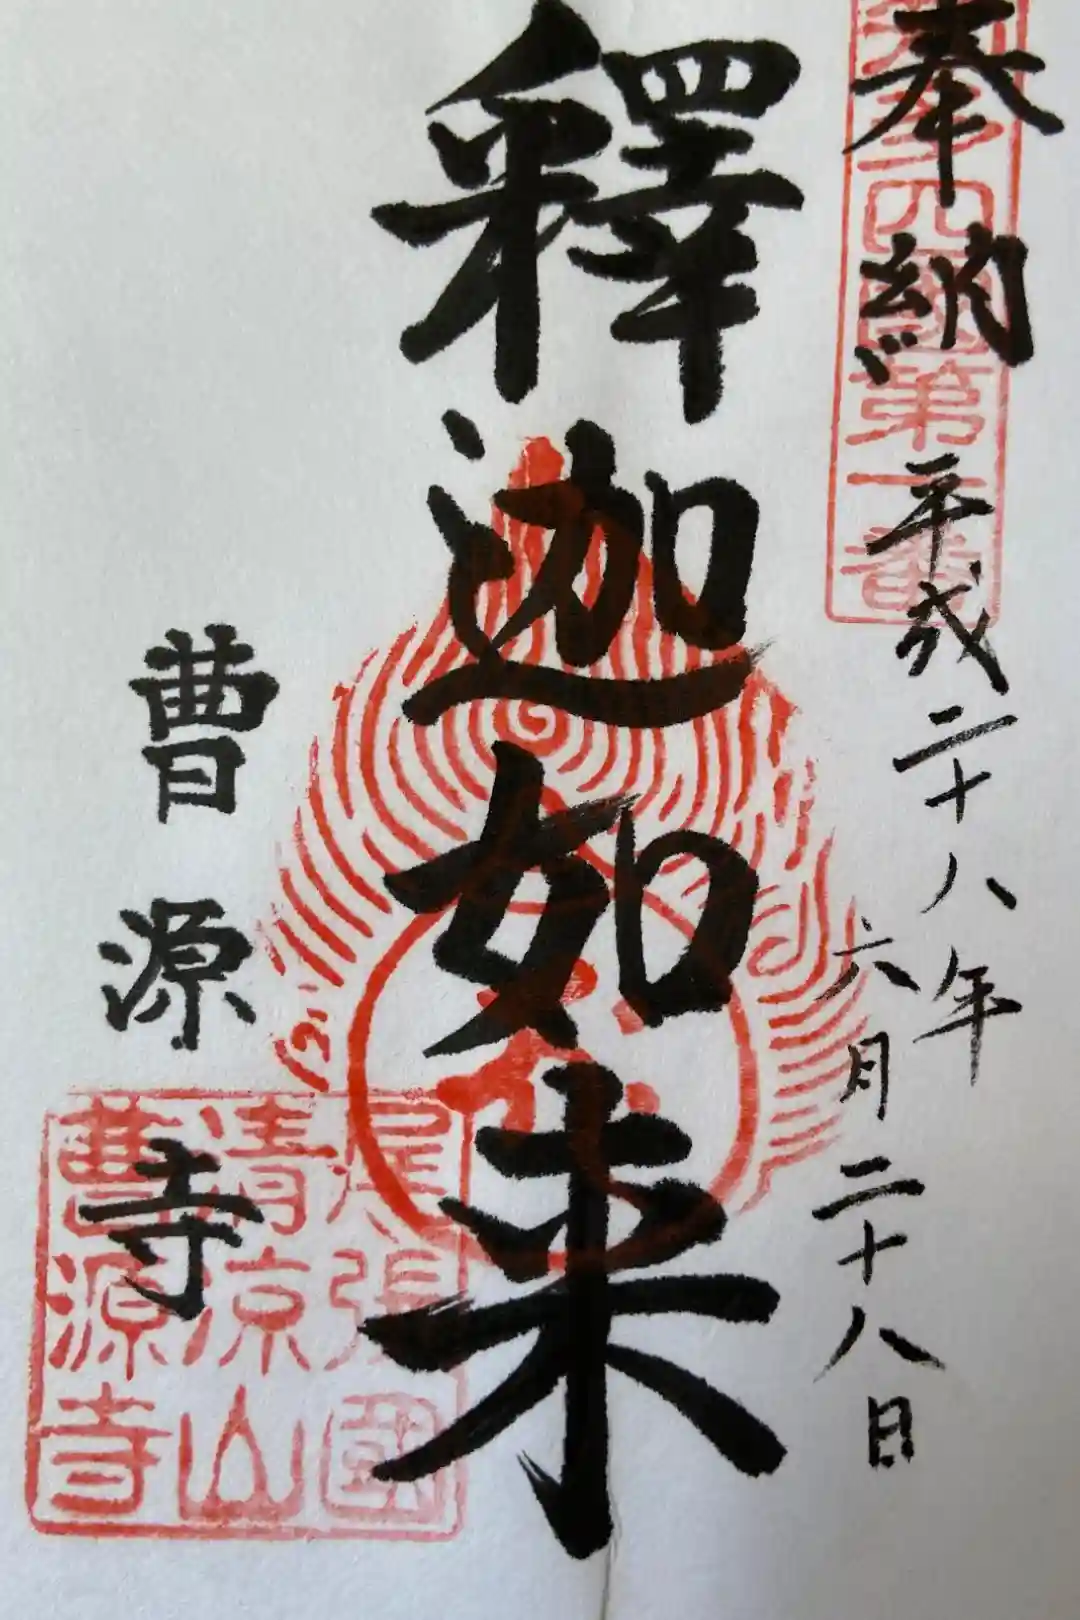 奉納
平成二十八年
六月二十八日
四國第一番
釋迦如来
曹源寺
尾張國
清涼山
曹源寺